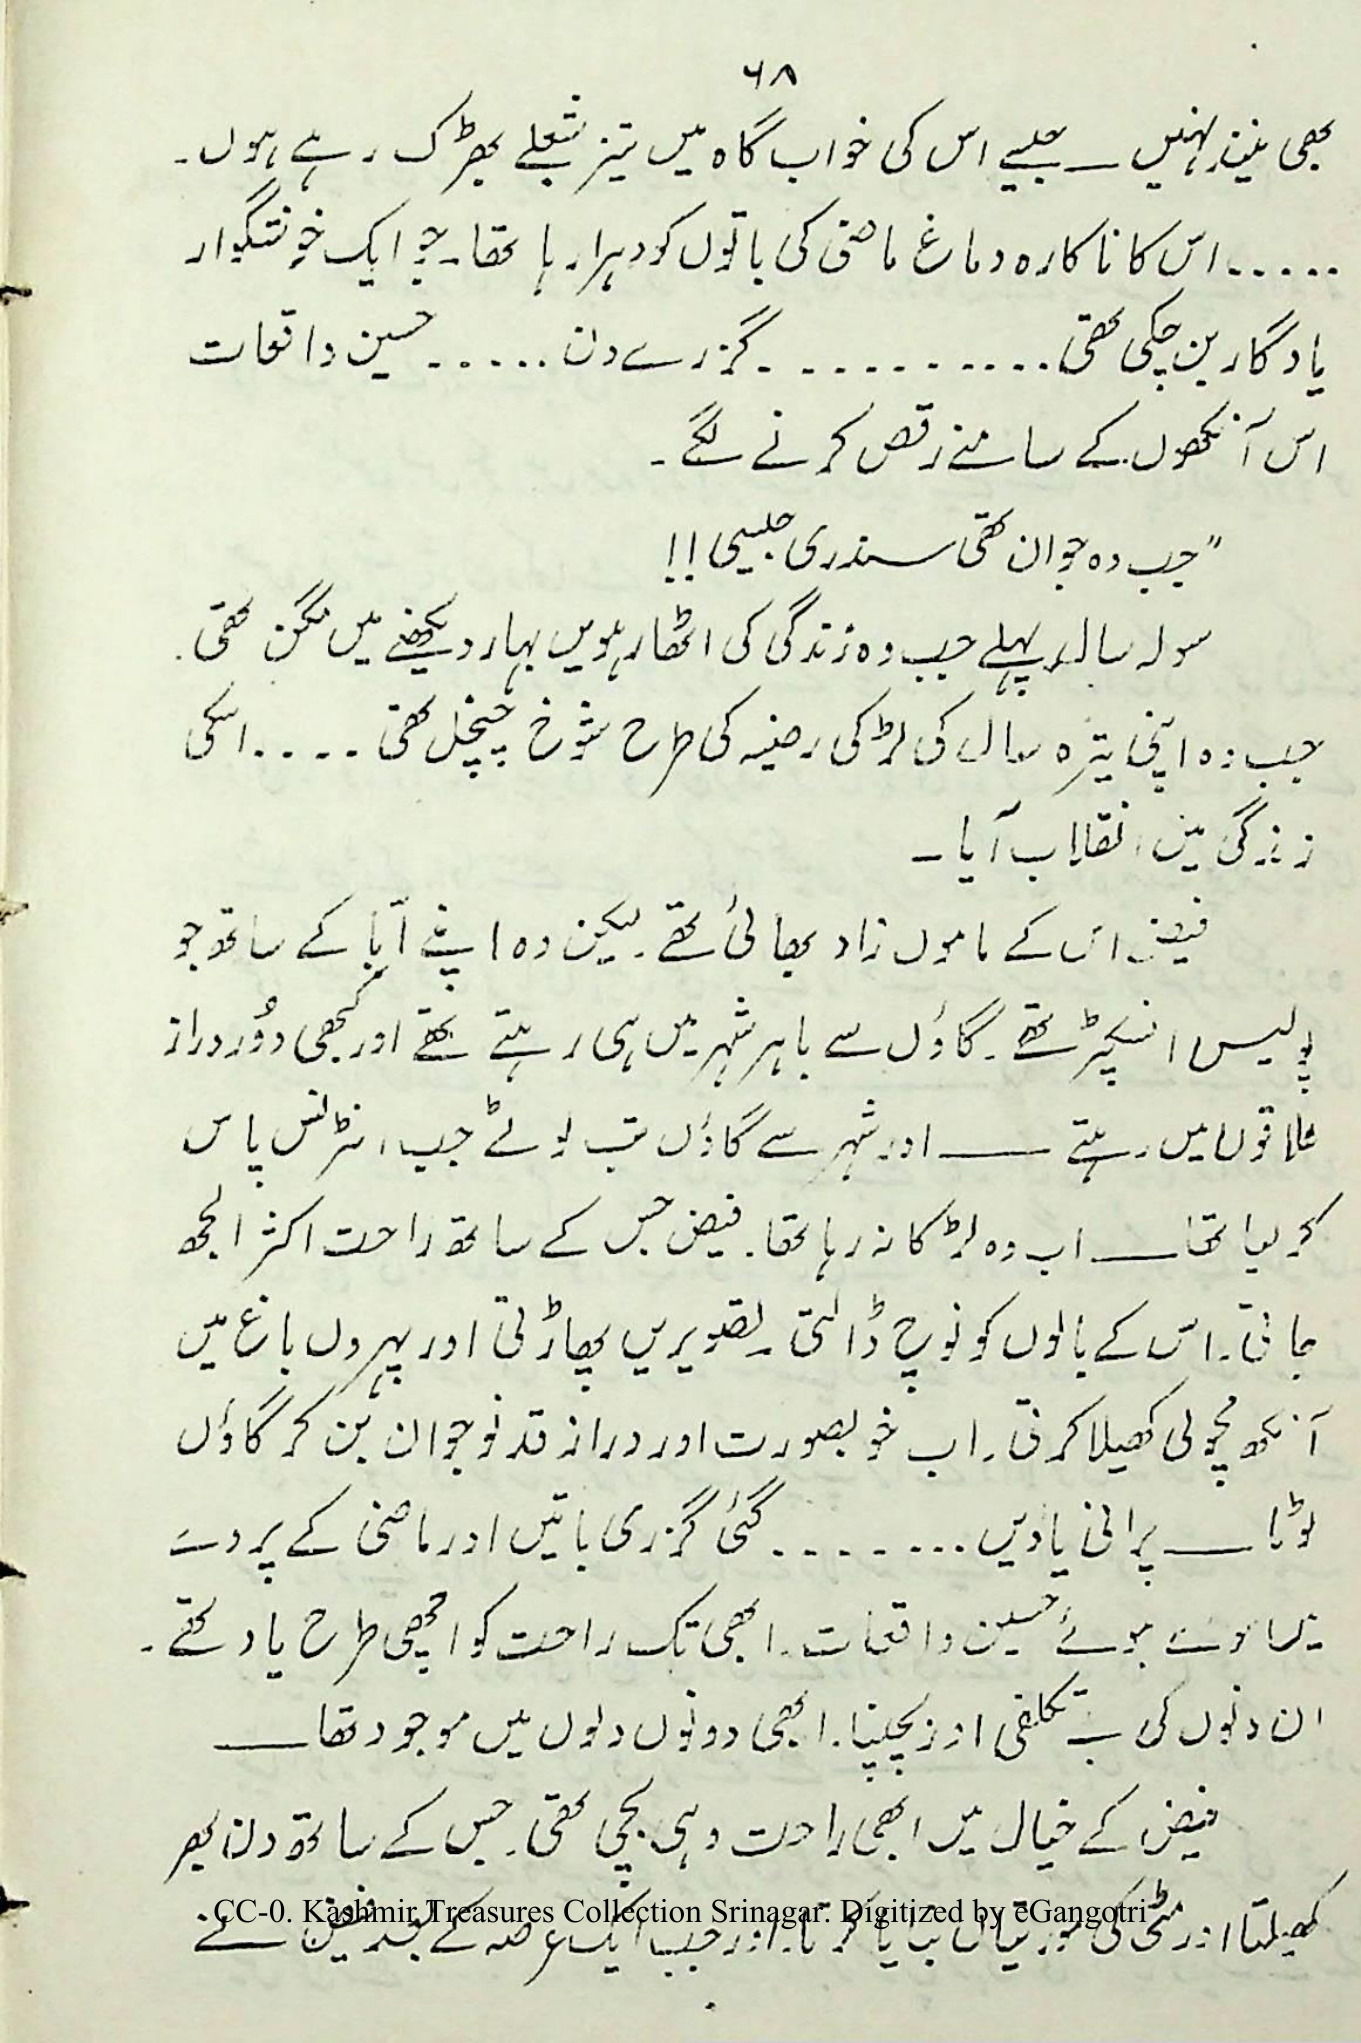 ۶۸
بھی نیند نہیں ـــ جیسے اس کی خواب گاہ میں تیز شعلے بھڑک رہے ہوں۔
.....اس کا ناکارہ دماغ ماضی کی باتوں کو دہرا رہا تھا۔ جو ایک خوشگوار
یادگار بن چکی تھی........... گزرے دن ...... حسین واقعات
اس آنکھوں کے سامنے رقص کرنے لگے۔
"جب وہ جوان تھی سندری جیسی!!
سولہ سال پہلے جب وہ زندگی کی اٹھارہویں بہار دیکھنے میں مگن تھی۔
جب وہ اپنی تیرہ سال کی لڑکی رضیہ کی طرح شوخ چنچل تھی ..... اسکی
زندگی میں انقلاب آیا۔
فیض اس کے ماموں زاد بھائی تھے۔ لیکن وہ اپنے ابّا کے ساتھ جو
پولیس انسپکٹر تھے۔ گاؤں سے باہر شہر میں ہی رہتے تھے اور کبھی دُور دراز
علاقوں میں رہتے ـــــ اور شہر سے گاؤں تب لوٹے جب انٹرنس پاس
کر لیا تھا ـــ اب وہ لڑکا نہ رہا تھا۔ فیض جس کے ساتھ راحت اکثر الجھ
جاتی۔ اس کے بالوں کو نوچ ڈالتی۔ تصویریں پھاڑتی اور پہروں باغ میں
آنکھ مچولی کھیلا کرتی۔ اب خوبصورت اور دراز قد نوجوان بن کر گاؤں
لوٹا ـــ پرانی یادیں........ گئی گزری باتیں اور ماضی کے پردے
میں سوئے ہوئے حسین واقعات۔ ابھی تک راحت کو اچھی طرح یاد تھے۔
ان دنوں کی بے تکلفی اور بچپنا۔ ابھی دونوں دلوں میں موجود تھا ـــ
فیض کے خیال میں ابھی راحت وہی بچی تھی۔ جس کے ساتھ دن بھر
کھیلتا اور مٹی کی مورتیاں بنایا کرتا۔ اور جب ایک عرصہ کے بعد فیض نے
CC-0. Kashmir Treasures Collection Srinagar. Digitized by eGangotri